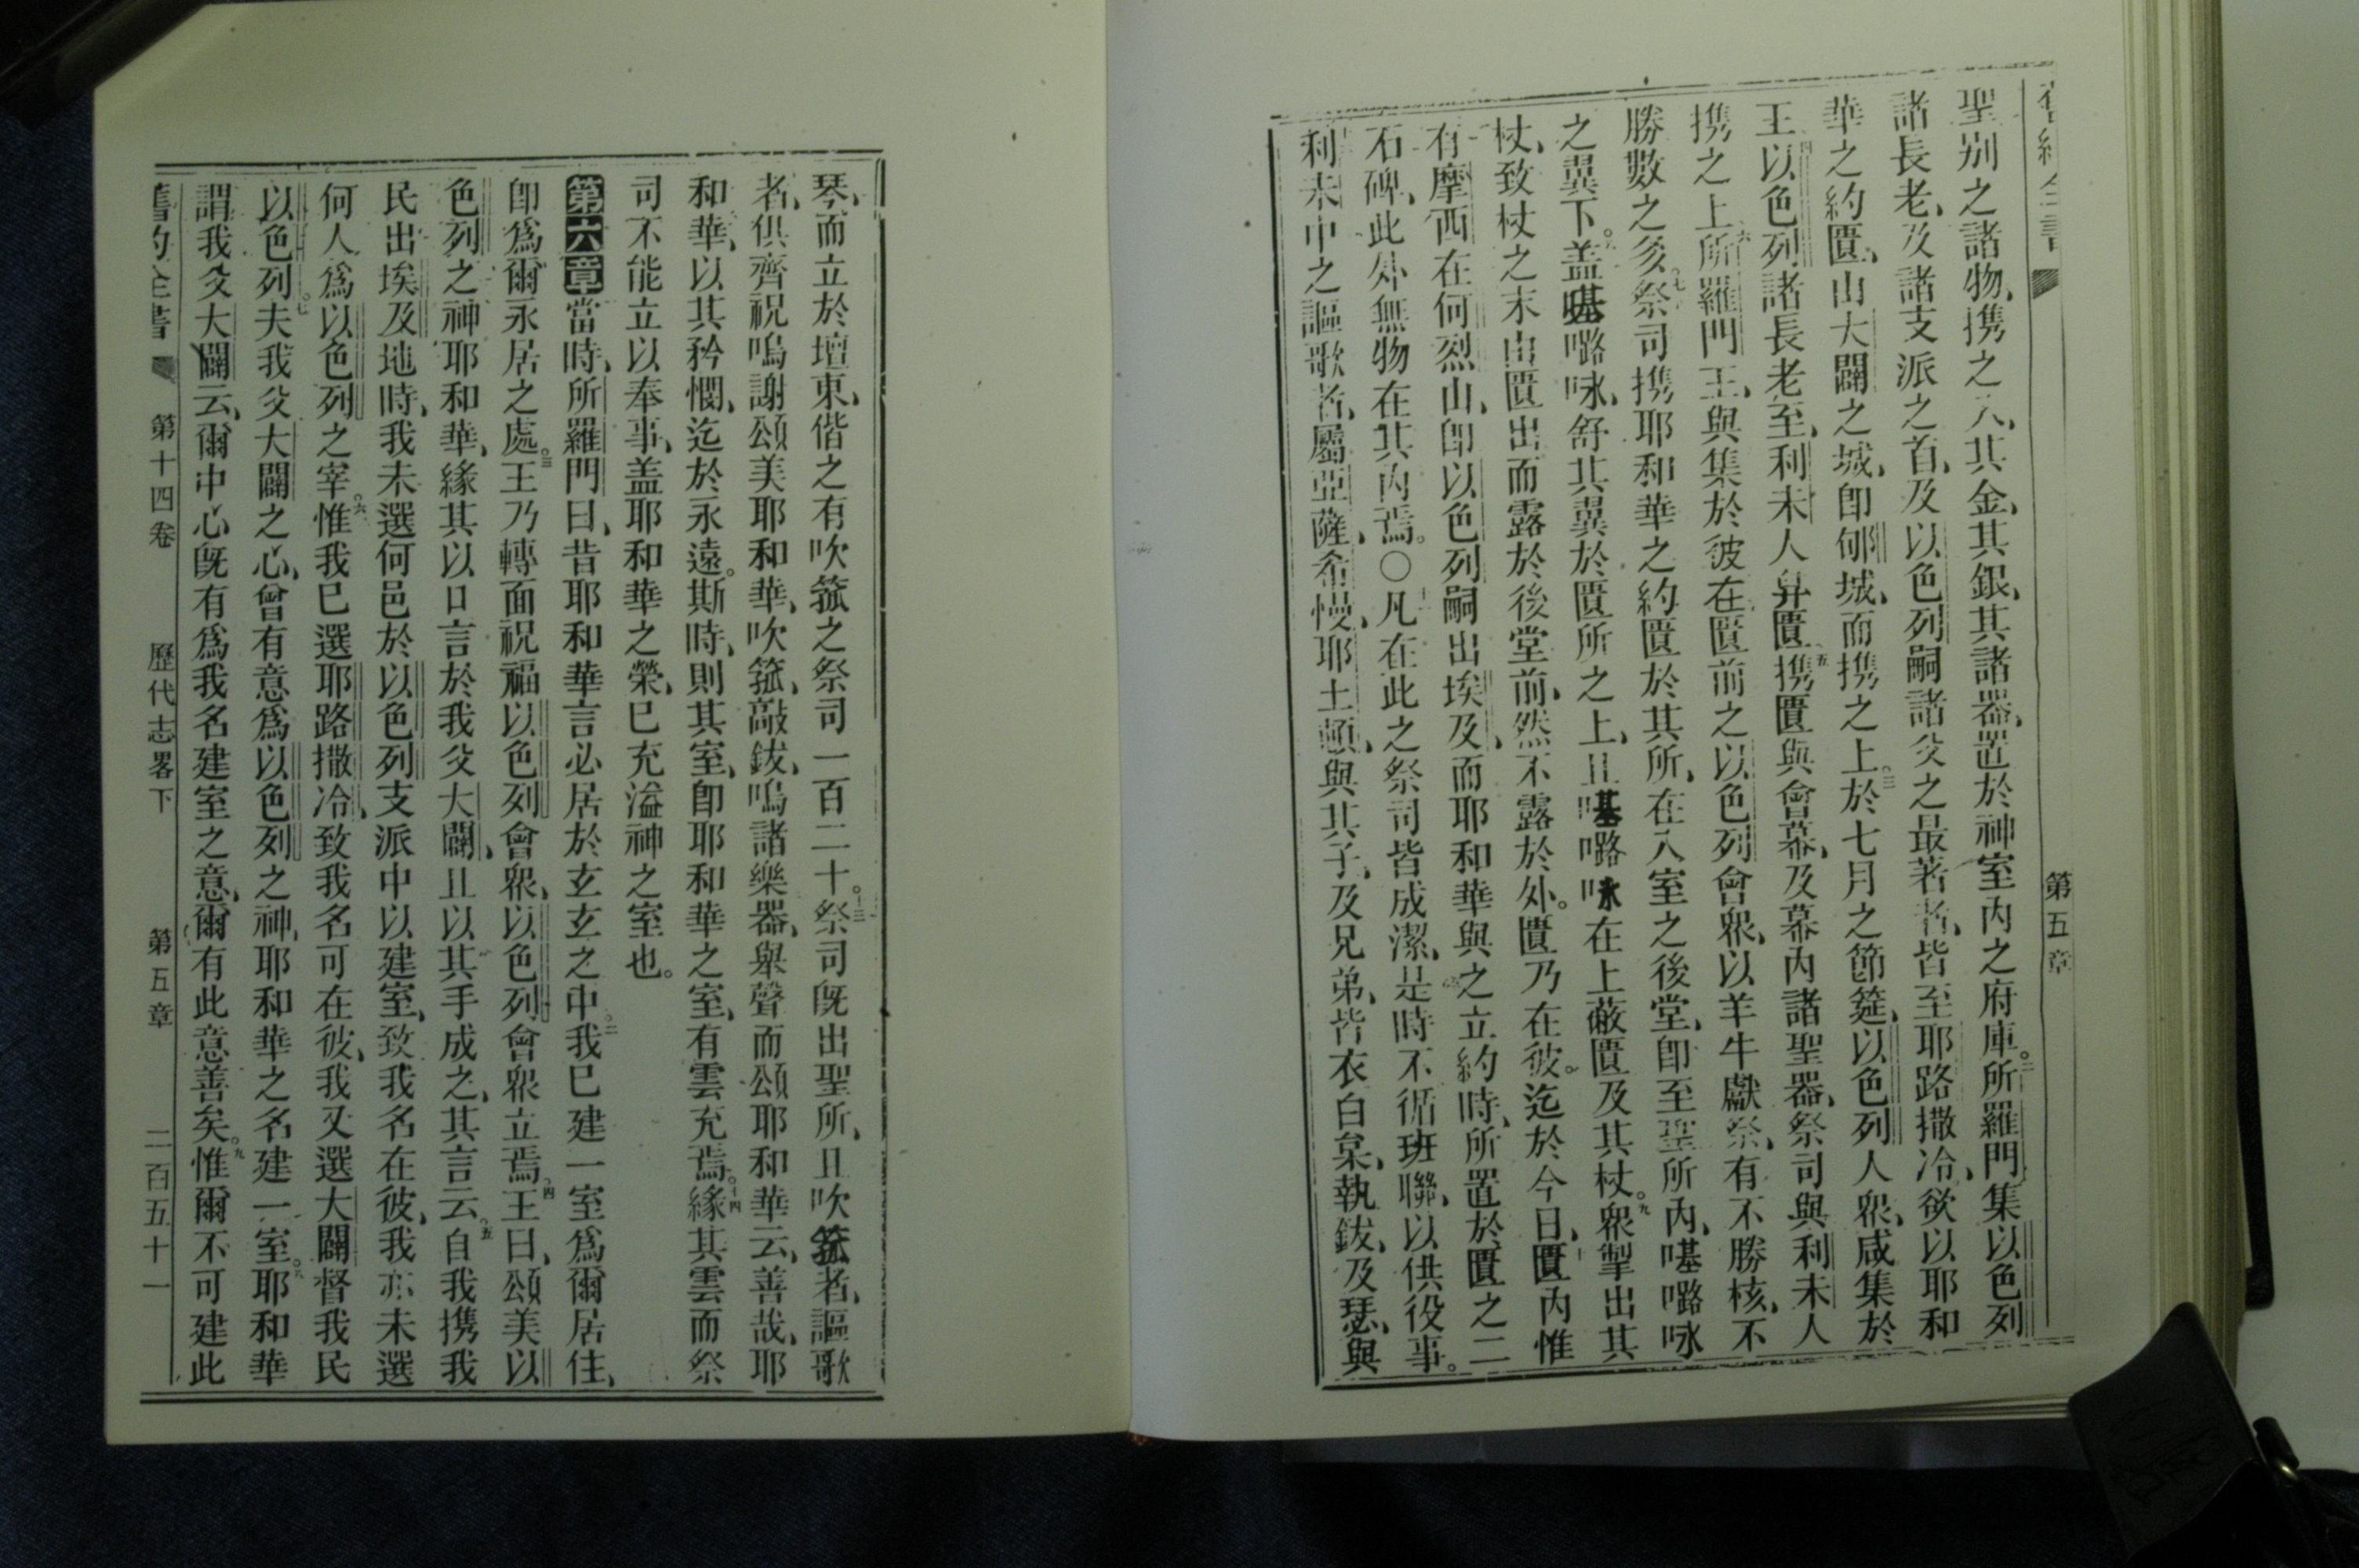 舊約全書 第五章
聖别之諸物、携之入、其金、其銀、其諸器、置於神室内之府庫。二所羅門集以色列
諸長老、及諸支派之首、及以色列嗣諸父之最著者、皆至耶路撒冷、欲以耶和
華之約匱、由大闢之城、卽郇城、而携之上。三於七月之節筵、以色列人衆、咸集於
王。四以色列諸長老至、利未人舁匱。五携匱與會幕、及幕内諸聖器、祭司與利未人
携之上。六所羅門王、與集於彼在匱前之以色列會衆、以羊牛獻祭、有不勝核、不
勝數之多。七祭司携耶和華之約匱於其所、在入室之後堂、卽至聖所内、𠸄嚕咏
之翼下。八盖𠸄嚕咏、舒其翼於匱所之上、且𠸄嚕咏在上蔽匱及其杖。九衆掣出其
杖、致杖之末由匱出而露於後堂前、然不露於外。匱乃在彼。迄於今日、十匱内惟
有摩西在何烈山、卽以色列嗣出埃及、而耶和華與之立約時、所置於匱之二
石碑、此外無物在其内焉。○十一凡在此之祭司皆成潔、是時不循班聯、以供役事。
利未中之謳歌者、屬亞薩、希慢、耶土頓、與其子、及兄弟、皆衣白枲、執鈸、及瑟、與
琴、而立於壇東、偕之有吹箛之祭司一百二十。十三祭司旣出聖所、且吹箛者、謳歌
者、俱齊祝嗚謝頌美耶和華、吹箛、敲鈸、嗚諸樂器、舉聲而頌耶和華云、善哉、耶
和華、以其矜憫、迄於永遠。斯時、則其室、卽耶和華之室、有雲充焉。十四緣其雲而祭
司不能立以奉事、盖耶和華之榮、已充溢神之室也。
第六章當時、所羅門曰、昔耶和華言必居於玄玄之中。二我已建一室爲爾居住、
卽爲爾永居之處。三王乃轉面祝福以色列會衆、以色列會衆立焉。四王曰、頌美以
色列之神耶和華、緣其以口言於我父大闢、且以其手成之、其言云。五自我携我
民出埃及地時、我未選何邑於以色列支派中以建室、致我名在彼、我亦未選
何人爲以色列之宰。六惟我已選耶路撒冷、致我名可在彼、我又選大闢督我民
以色列。七夫我父大闢之心、曾有意爲以色列之神、耶和華之名建一室。八耶和華
謂我父大闢云、爾中心旣有爲我名建室之意、爾有此意善矣。九惟爾不可建此
舊約全書 第十四卷 歷代志畧下 第五章 二百五十一